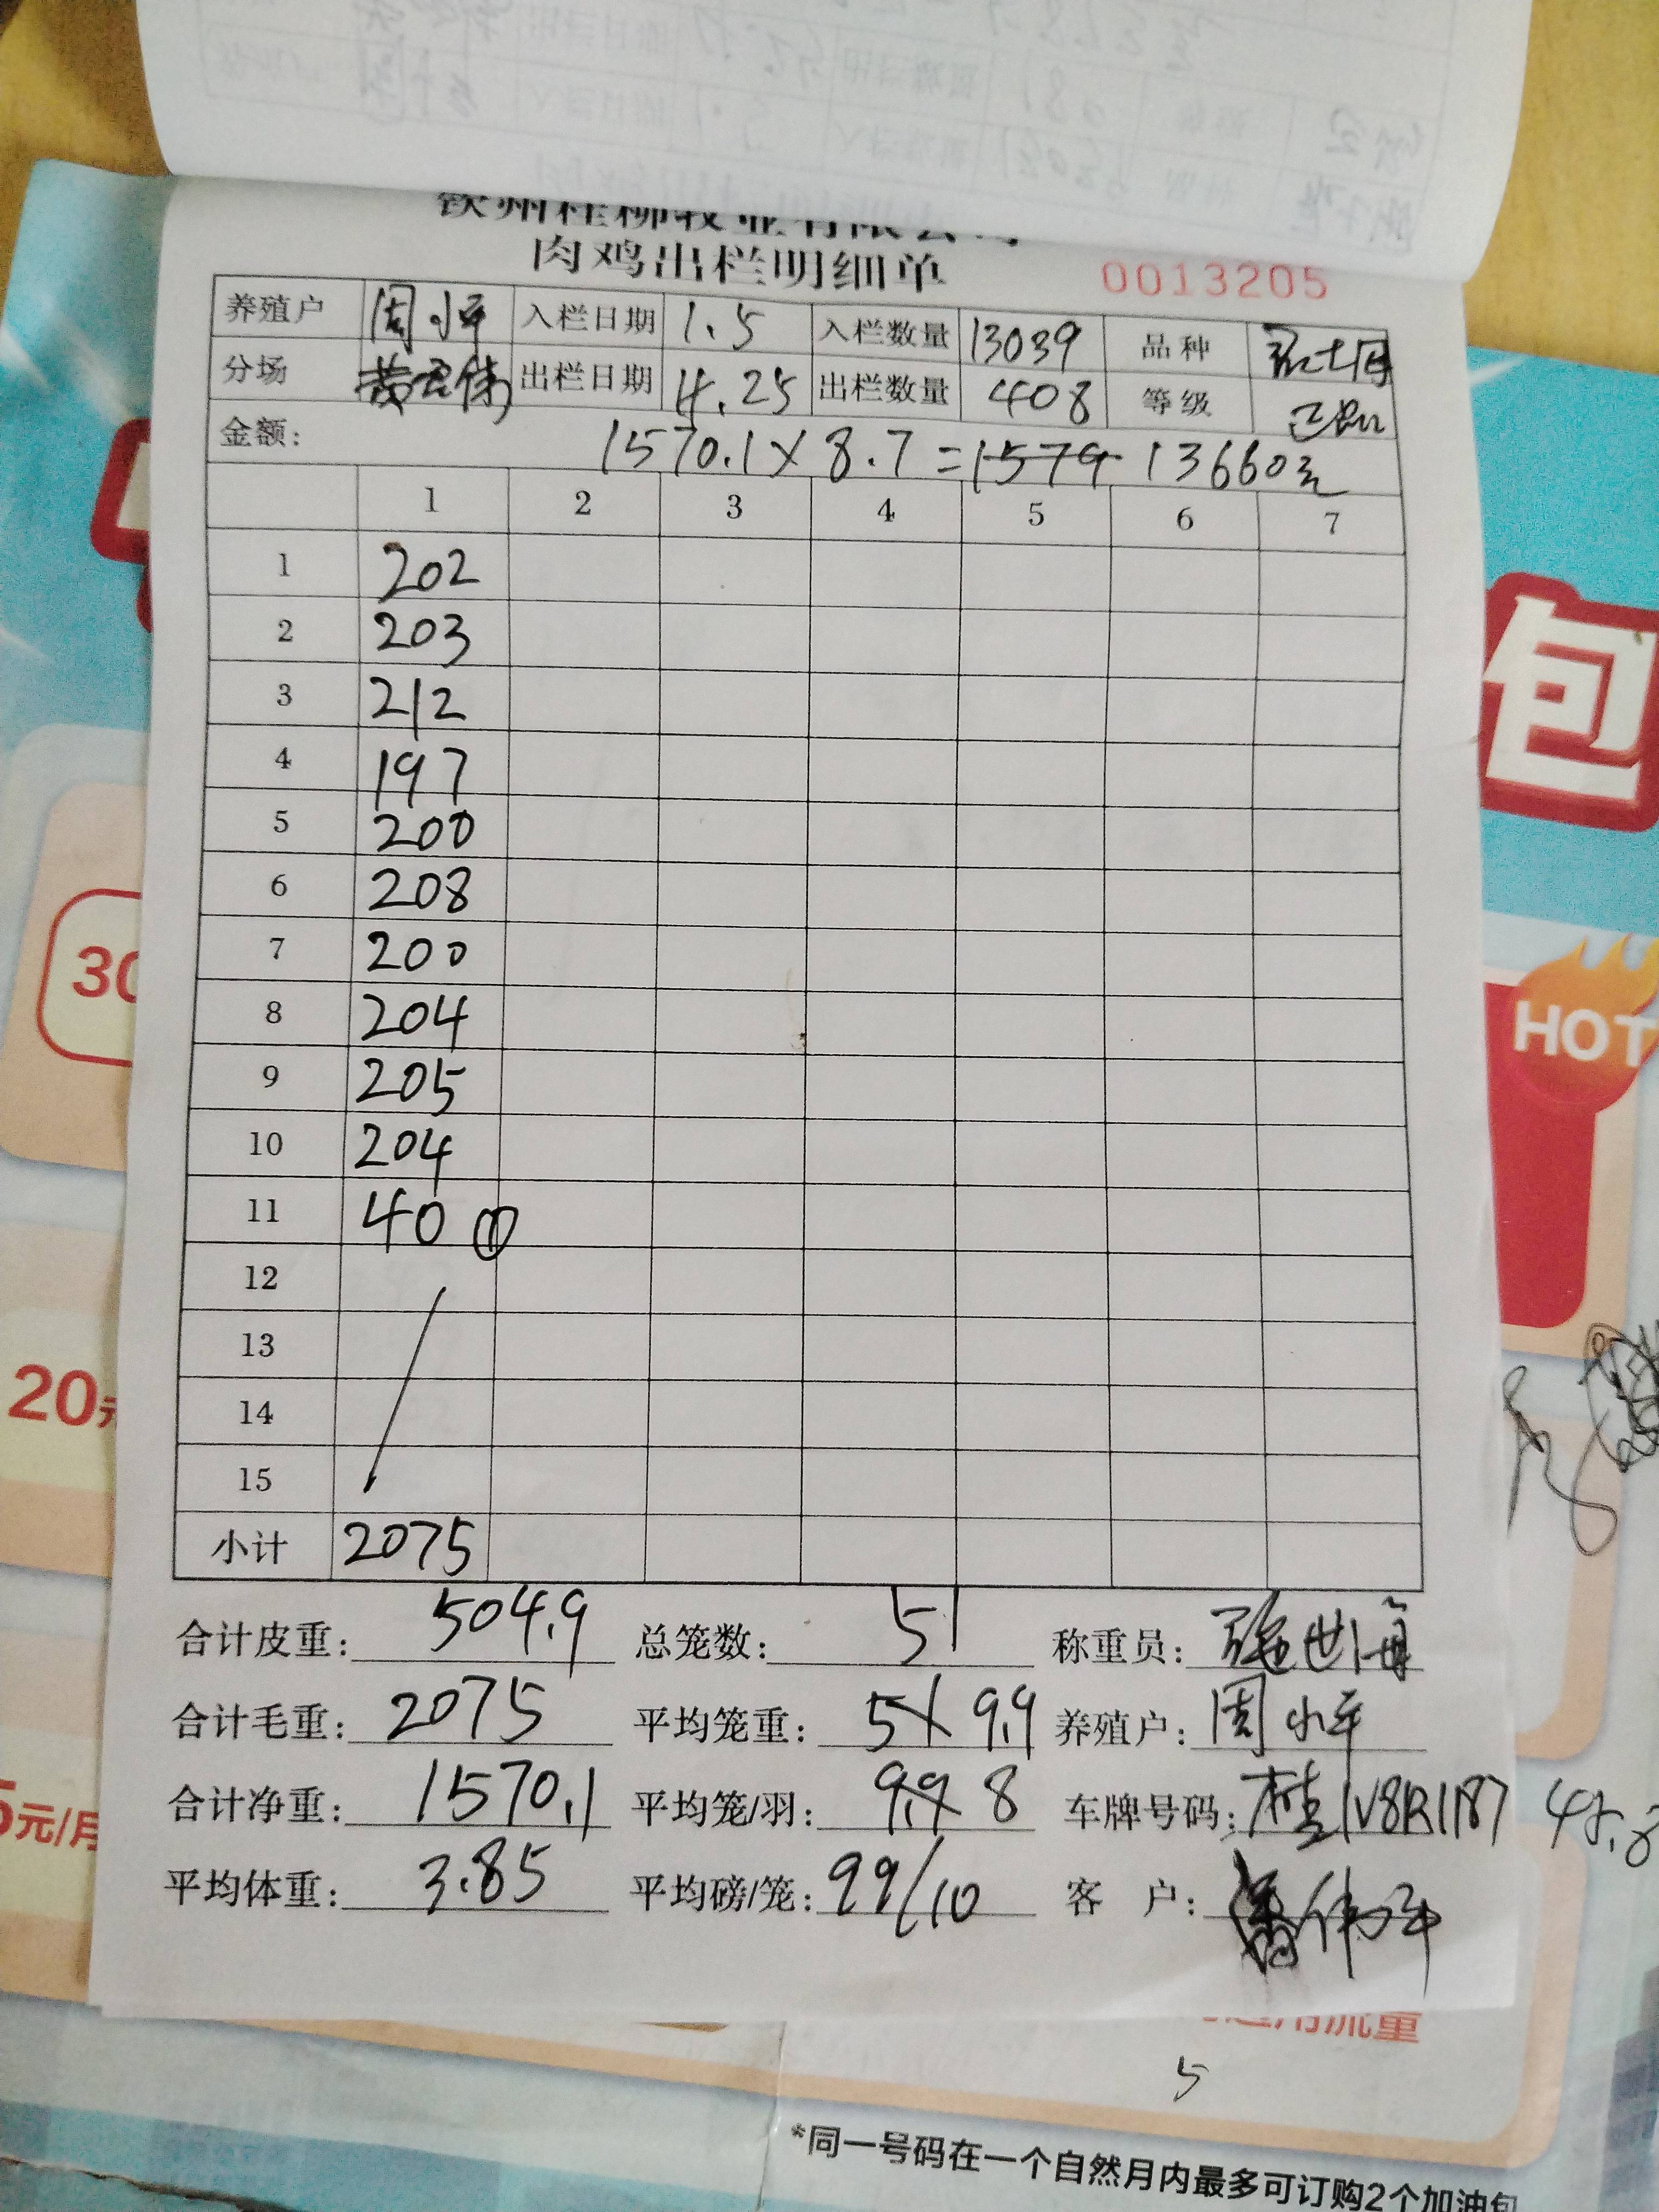 钦州桂柳牧业有限公司
肉鸡出栏明细单 0013205
养殖户 周小平 入栏日期 1.5 入栏数量 13039 品种
分场 出栏日期 4.25 出栏数量 408 等级 正品
金额: 1570.1×8.7=1579 13660元
1 2 3 4 5 6 7
1 202
2 203
3 212
4 197
5 200
6 208
7 200
8 204
9 205
10 204
11 40 ①
12
13
14
15
小计 2075
合计皮重: 504.9 总笼数: 51 称重员: 施世海
合计毛重: 2075 平均笼重: 51 9.9 养殖户: 周小平
合计净重: 1570.1 平均笼/羽: 9.9 8 车牌号码: 桂
平均体重: 3.85 平均磅/笼: 99/10 客 户:
包
30
HOT
20元
5元/月
通用流量
5
*同一号码在一个自然月内最多可订购2个加油包